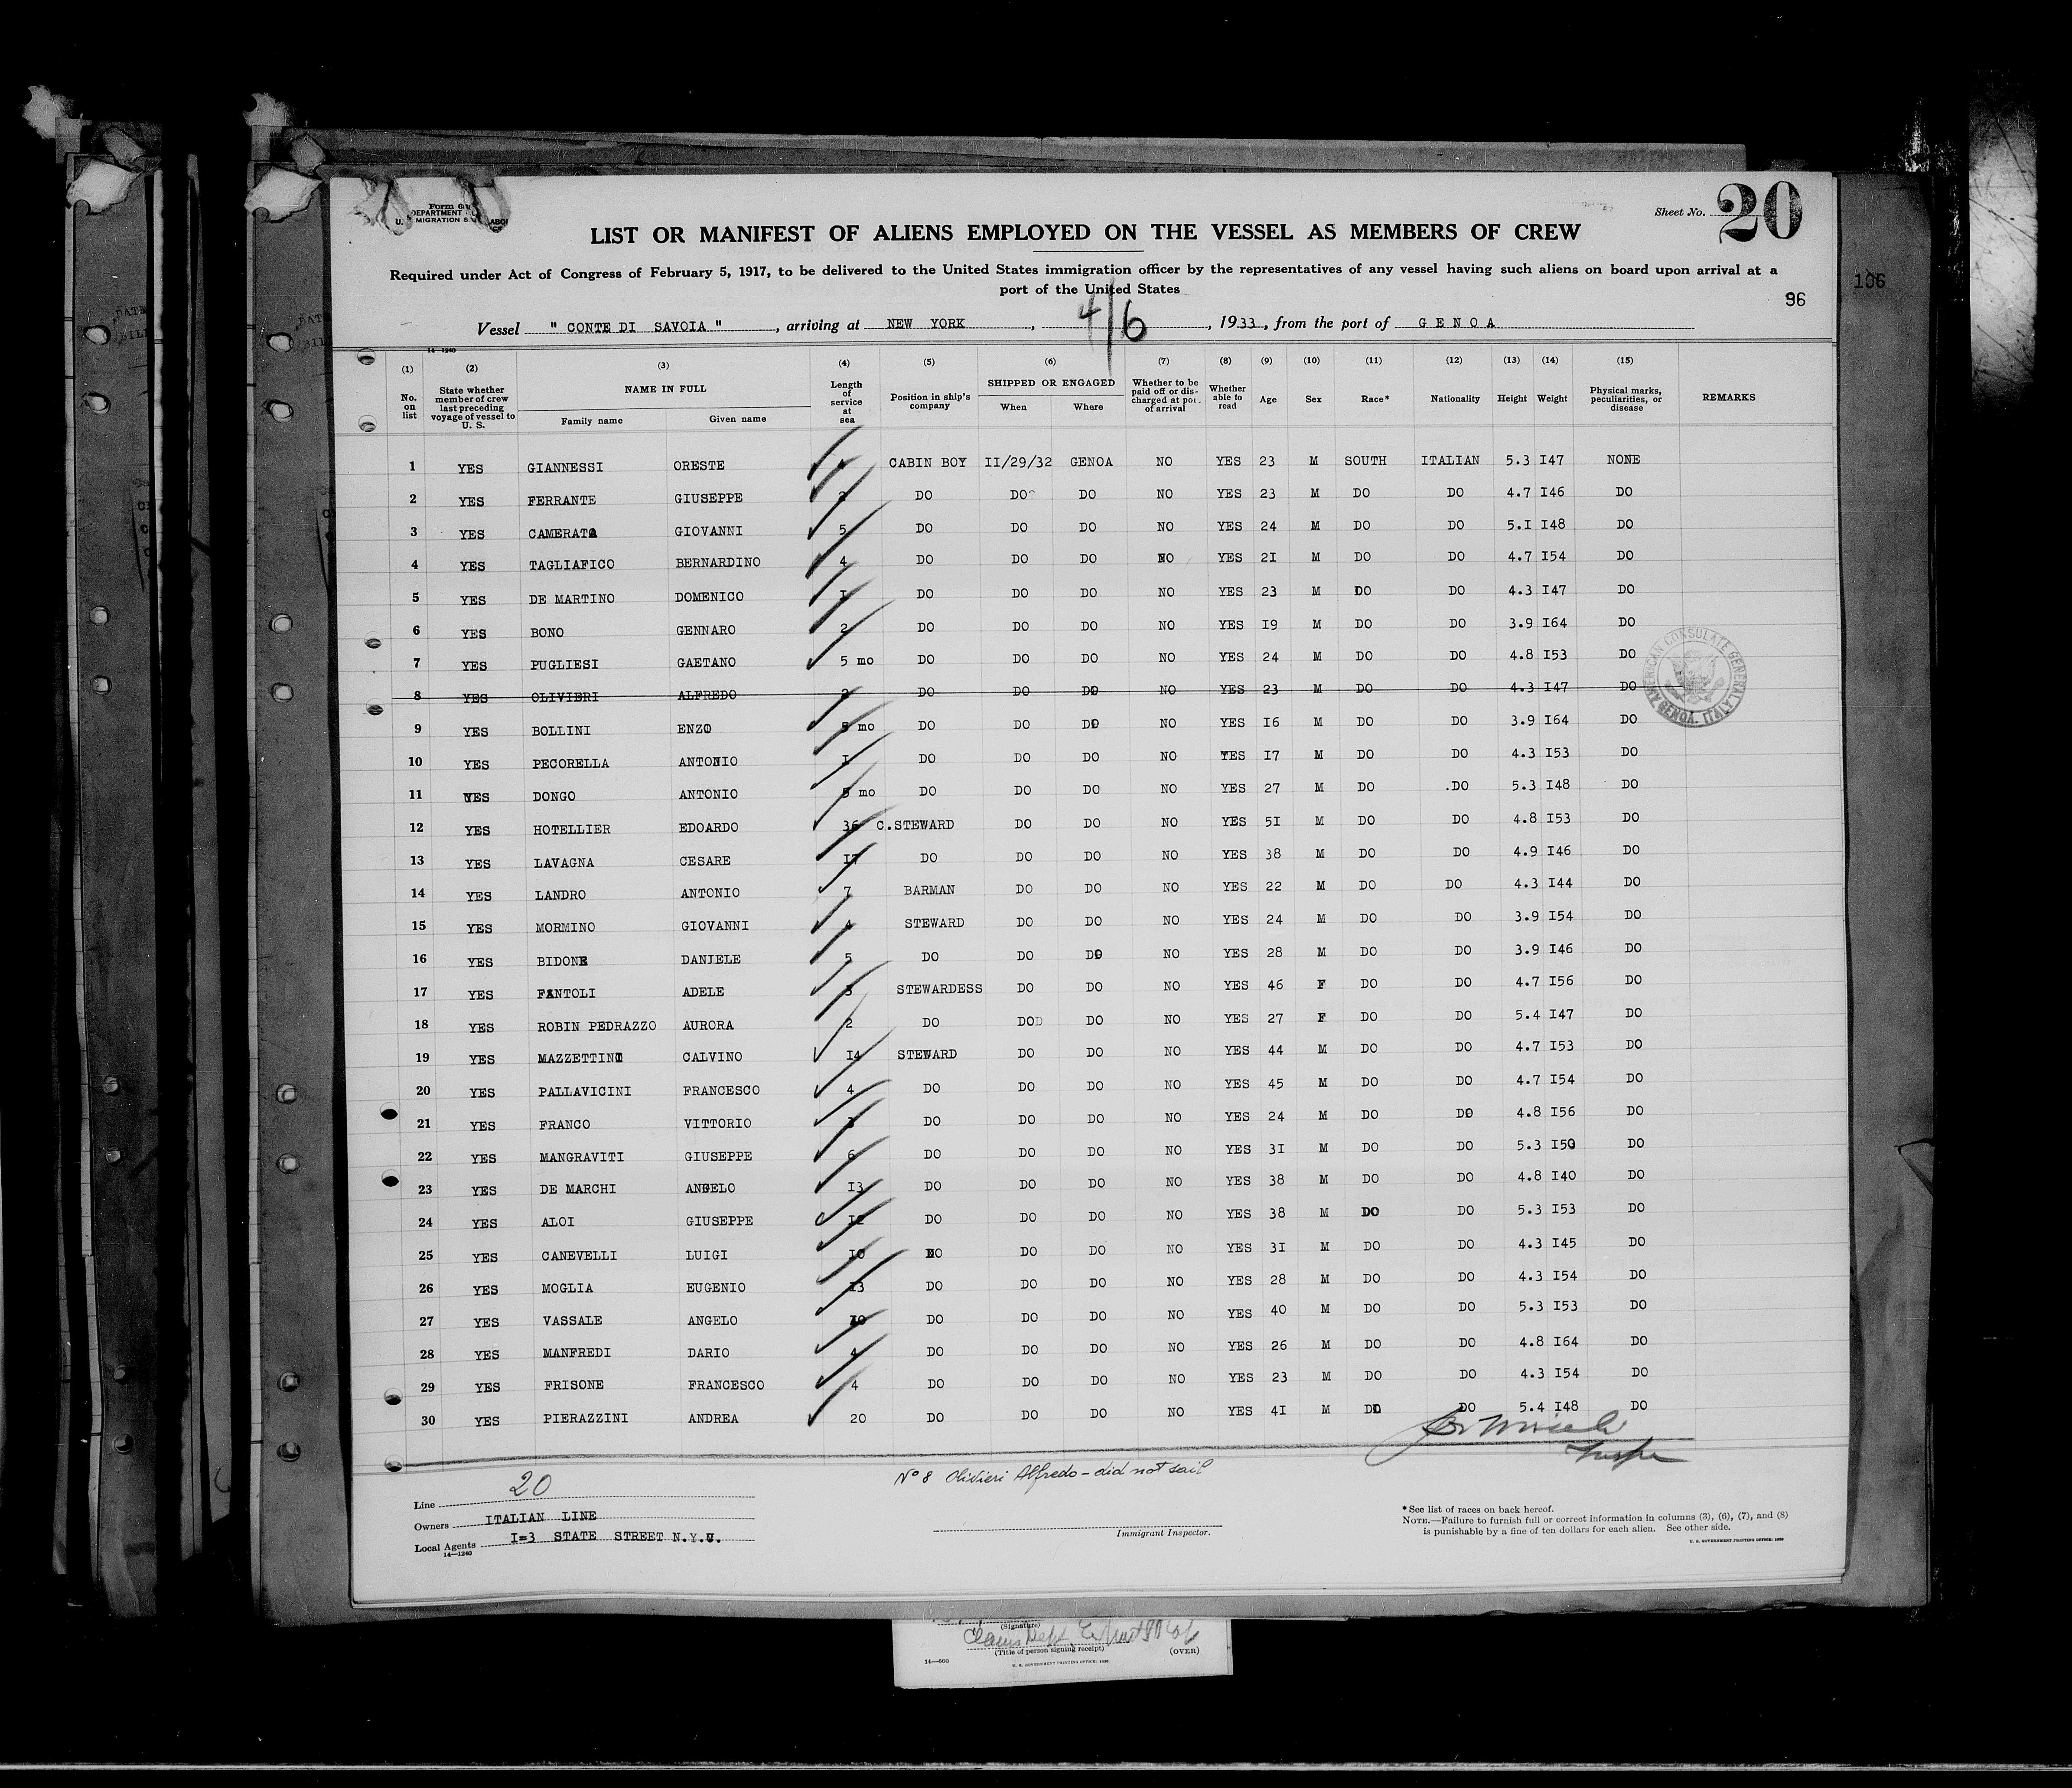 Sheet No. 20
LIST OR MANIFEST OF ALIENS EMPLOYED ON THE VESSEL AS MEMBERS OF CREW
Required under Act of Congress of February 5, 1917, to be delivered to the United States immigration officer by the representatives of any vessel having such aliens on board upon arrival at a
port of the United States
106
96
Vessel " CONTE DI SAVOIA " , arriving at NEW YORK , 4/6 , 1933, from the port of GENOA
14—1240
(1) (2) (3) (4) (5) (6) (7) (8) (9) (10) (11) (12) (13) (14) (15)
No. on list State whether member of crew last preceding voyage of vessel to U. S. NAME IN FULL Family name Given name Length of service at sea Position in ship's company SHIPPED OR ENGAGED When Where Whether to be paid off or discharged at port of arrival Whether able to read Age Sex Race* Nationality Height Weight Physical marks, peculiarities, or disease REMARKS
1 YES GIANNESSI ORESTE CABIN BOY II/29/32 GENOA NO YES 23 M SOUTH ITALIAN 5.3 I47 NONE
2 YES FERRANTE GIUSEPPE DO DO DO NO YES 23 M DO DO 4.7 I46 DO
3 YES CAMERATA GIOVANNI 5 DO DO DO NO YES 24 M DO DO 5.I I48 DO
4 YES TAGLIAFICO BERNARDINO 4 DO DO DO NO YES 2I M DO DO 4.7 I54 DO
5 YES DE MARTINO DOMENICO I DO DO DO NO YES 23 M DO DO 4.3 I47 DO
6 YES BONO GENNARO 2 DO DO DO NO YES I9 M DO DO 3.9 I64 DO
7 YES PUGLIESI GAETANO 5 mo DO DO DO NO YES 24 M DO DO 4.8 I53 DO
8 YES OLIVIERI ALFREDO 2 DO DO DO NO YES 23 M DO DO 4.3 I47 DO
9 YES BOLLINI ENZO 5 mo DO DO DO NO YES I6 M DO DO 3.9 I64 DO
10 YES PECORELLA ANTONIO I DO DO DO NO YES I7 M DO DO 4.3 I53 DO
11 YES DONGO ANTONIO 5 mo DO DO DO NO YES 27 M DO .DO 5.3 I48 DO
12 YES HOTELLIER EDOARDO 36 C.STEWARD DO DO NO YES 5I M DO DO 4.8 I53 DO
13 YES LAVAGNA CESARE I7 DO DO DO NO YES 38 M DO DO 4.9 I46 DO
14 YES LANDRO ANTONIO 7 BARMAN DO DO NO YES 22 M DO DO 4.3 I44 DO
15 YES MORMINO GIOVANNI 4 STEWARD DO DO NO YES 24 M DO DO 3.9 I54 DO
16 YES BIDONE DANIELE 5 DO DO DO NO YES 28 M DO DO 3.9 I46 DO
17 YES FANTOLI ADELE 3 STEWARDESS DO DO NO YES 46 F DO DO 4.7 I56 DO
18 YES ROBIN PEDRAZZO AURORA 2 DO DOD DO NO YES 27 F DO DO 5.4 I47 DO
19 YES MAZZETTINI CALVINO I4 STEWARD DO DO NO YES 44 M DO DO 4.7 I53 DO
20 YES PALLAVICINI FRANCESCO 4 DO DO DO NO YES 45 M DO DO 4.7 I54 DO
21 YES FRANCO VITTORIO 3 DO DO DO NO YES 24 M DO DO 4.8 I56 DO
22 YES MANGRAVITI GIUSEPPE 6 DO DO DO NO YES 3I M DO DO 5.3 I50 DO
23 YES DE MARCHI ANGELO I3 DO DO DO NO YES 38 M DO DO 4.8 I40 DO
24 YES ALOI GIUSEPPE I2 DO DO DO NO YES 38 M DO DO 5.3 I53 DO
25 YES CANEVELLI LUIGI I0 DO DO DO NO YES 3I M DO DO 4.3 I45 DO
26 YES MOGLIA EUGENIO I3 DO DO DO NO YES 28 M DO DO 4.3 I54 DO
27 YES VASSALE ANGELO DO DO DO NO YES 40 M DO DO 5.3 I53 DO
28 YES MANFREDI DARIO 4 DO DO DO NO YES 26 M DO DO 4.8 I64 DO
29 YES FRISONE FRANCESCO 4 DO DO DO NO YES 23 M DO DO 4.3 I54 DO
30 YES PIERAZZINI ANDREA 20 DO DO DO NO YES 4I M DO DO 5.4 I48 DO
AMERICAN CONSULATE GENERAL GENOA, ITALY
Nº 8 Olivieri Alfredo – did not sail
Line 20
Owners ITALIAN LINE
Local Agents I=3 STATE STREET N.Y.C.
14—1240
Immigrant Inspector.
*See list of races on back hereof.
NOTE.—Failure to furnish full or correct information in columns (3), (6), (7), and (8)
is punishable by a fine of ten dollars for each alien. See other side.
U. S. GOVERNMENT PRINTING OFFICE:
(Signature)
(Title of person signing receipt)
(OVER)
14—660
U. S. GOVERNMENT PRINTING OFFICE: